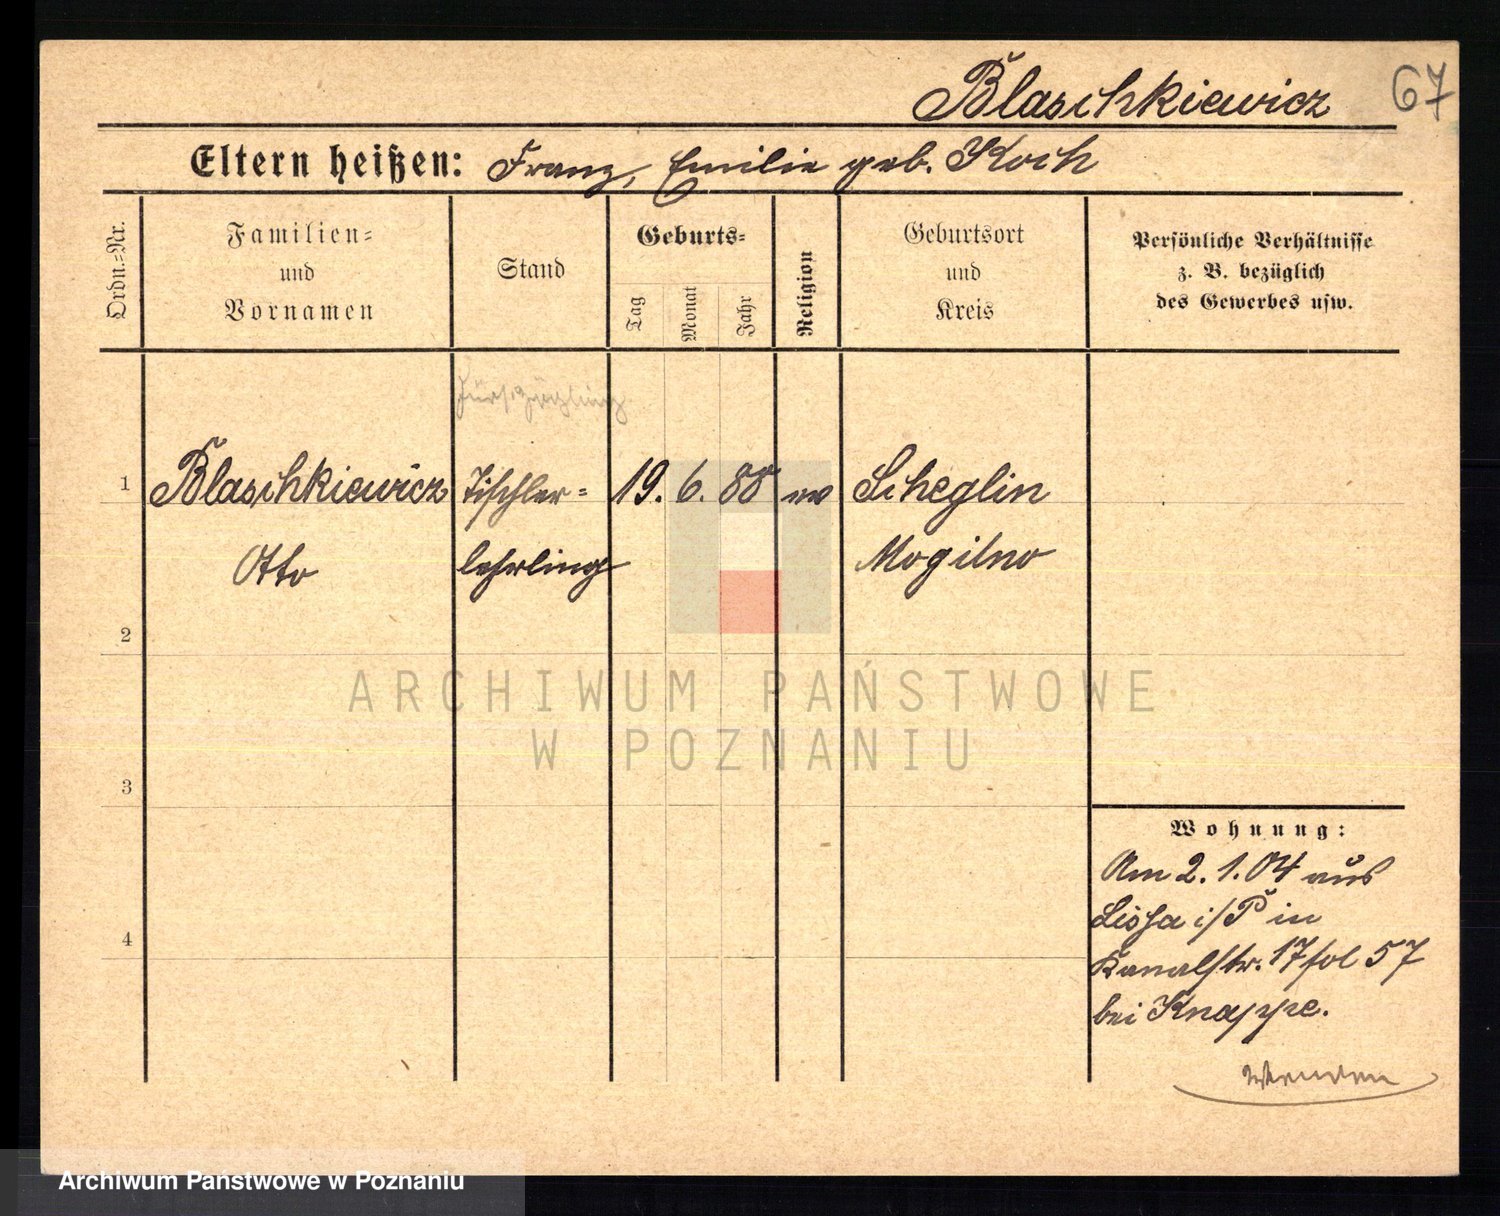 Blaschkiewicz 67
Eltern heißen: Franz, Emilie geb. Koch
Ordn.-Nr.
Familien-
und
Vornamen
Stand
Geburts-
Tag
Monat
Jahr
Religion
Geburtsort
und
Kreis
Persönliche Verhältnisse
z. B. bezüglich
des Gewerbes usw.
Fürs. Zögling
1 Blaschkiewicz Tischler= 19. 6. 88 ev Scheglin
Otto lehrling Mogilno
2
3
4
Wohnung:
Am 2.1.04 aus
Lissa i/P in
Kanalstr. 17 fol 57
bei Knappe.
Wenden
ARCHIWUM PAŃSTWOWE
W POZNANIU
Archiwum Państwowe w Poznaniu